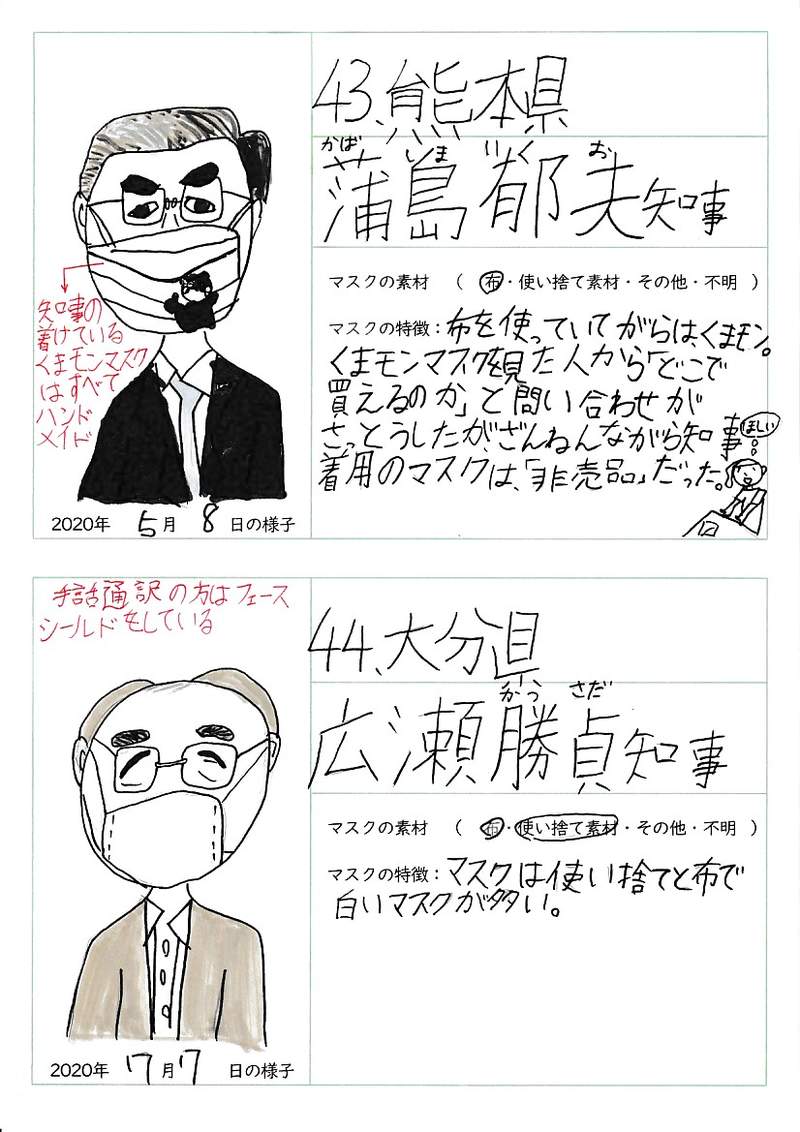 43、熊本県
かば しま いく お
蒲島郁夫知事
マスクの素材 ( 布・使い捨て素材・その他・不明 )
マスクの特徴：布を使っていてがらは、くまモン。
くまモンマスクを見た人から「どこで
買えるのか」と問い合わせが
さっとうしたが、ざんねんながら知事
着用のマスクは、「非売品」だった。
ほしい
知事の
着けている
くまモンマスク
はすべて
ハンド
メイド
2020年 5月 8 日の様子
手話通訳の方はフェース
シールドをしている
44、大分県
かつ さだ
広瀬勝貞知事
マスクの素材 ( 布・使い捨て素材・その他・不明 )
マスクの特徴：マスクは使い捨てと布で
白いマスクが多い。
2020年 7月7 日の様子